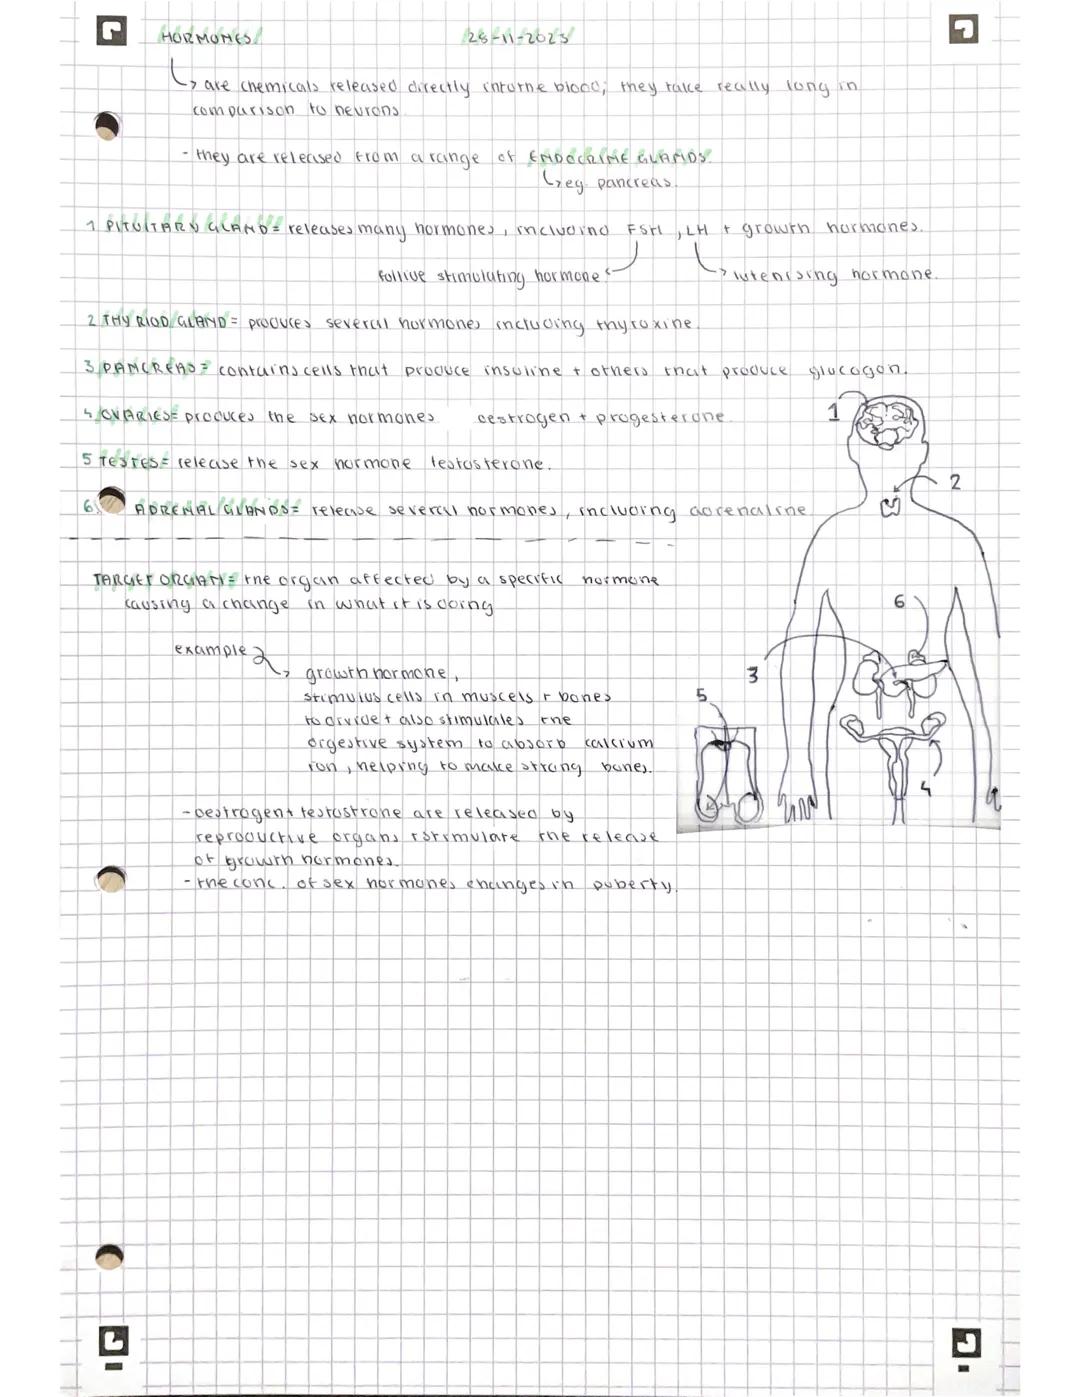 HORMONES 28-11-2023
↳ are chemicals released directly into the blood; they take really long in
comparison to neurons.
- they are released from a range of ENDOCRINE GLANDS.
↳ eg. pancreas.
1 PITUITARY GLAND = releases many hormones, including FSH, LH + growth hormones.
follive stimulating hormone lutenising hormone.
2 THYRIOD GLAND = produces several hormones including thyroxine.
3 PANCREAS = contains cells that produce insuline + others that produce glucagon.
4 OVARIES = produces the sex hormones oestrogen + progesterone.
5 TESTES = release the sex hormone testosterone.
6 ADRENAL GLANDS = release several hormones, including adrenaline
TARGET ORGAN = the organ affected by a specific hormone
causing a change in what it is doing
example
↳ growth hormone,
stimulus cells in muscels + bones
to divide + also stimulates the
digestive system to absorb calcium
ion, helping to make strong bones.
- oestrogen + testostrone are released by
reproductive organs + stimulate the release
of growth hormones.
- the conc. of sex hormones changes in puberty.
1
2
6
3
5
4